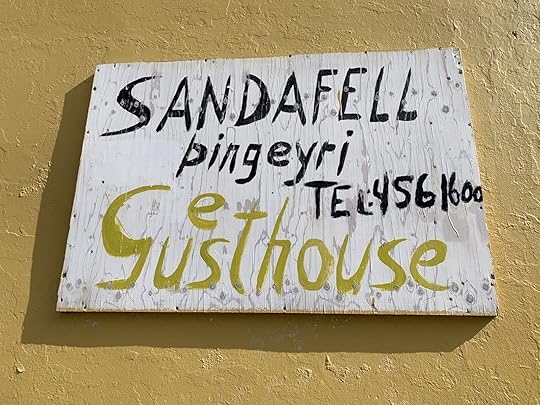 SANDAFELL
þingeyri
TEL:4561600
Guesthouse